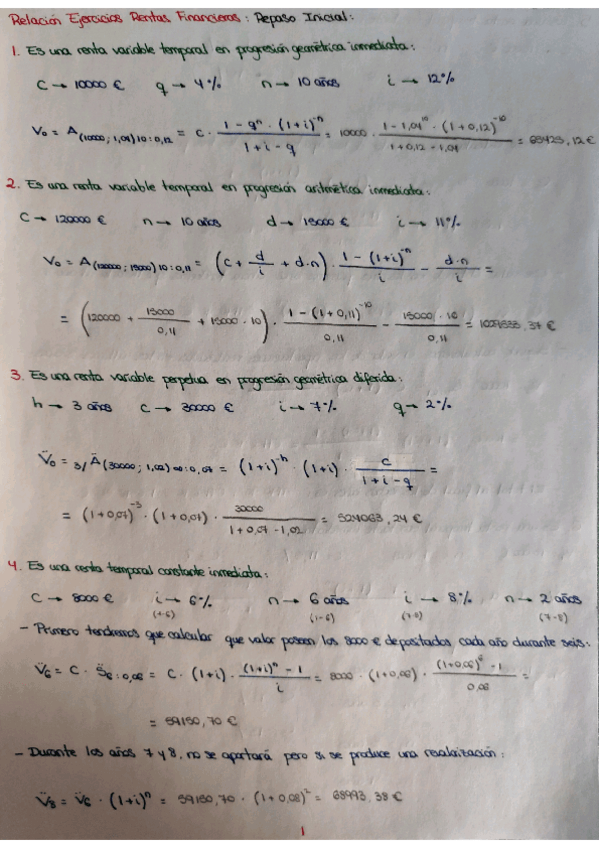 Relación Ejercicios Rentas Financieras: Repaso Inicial:
1. Es una renta variable temporal en progresión geométrica inmediata:
C → 10000 € q → 4% n → 10 años i → 12%
V₀ = A(10000; 1,04)10:0,12 = c · (1 - qⁿ · (1+i)⁻ⁿ) / (1+i-q) = 10000 · (1 - 1,04¹⁰ · (1+0,12)⁻¹⁰) / (1+0,12-1,04) = 65425,12€
2. Es una renta variable temporal en progresión aritmética inmediata:
C → 120000 € n → 10 años d → 15000 € i → 11%
V₀ = A(120000; 15000)10:0,11 = (c + d/i + d·n) · (1 - (1+i)⁻ⁿ)/i - d·n/i =
= (120000 + 15000/0,11 + 15000·10) · (1 - (1+0,11)⁻¹⁰)/0,11 - 15000·10/0,11 = 1029533,37 €
3. Es una renta variable perpetua en progresión geométrica diferida:
h → 3 años c → 30000 € i → 7% q → 2%
V̈₀ = 3/Ä(30000; 1,02)∞:0,07 = (1+i)⁻ʰ · (1+i) · c/(1+i-q) =
= (1+0,07)⁻³ · (1+0,07) · 30000/(1+0,07-1,02) = 524063,24 €
4. Es una renta temporal constante inmediata:
C → 8000 € i → 6% n → 6 años i → 8% n → 2 años
(1-6) (1-6) (7-8) (7-8)
- Primero tendremos que calcular que valor poseen los 8000 € depositados cada año durante seis:
V̈₆ = C · S̈6:0,06 = C · (1+i) · ((1+i)ⁿ - 1)/i = 8000 · (1+0,06) · ((1+0,06)⁶ - 1)/0,06 =
= 59150,70 €
- Durante los años 7 y 8, no se aportará pero si se produce una revalorización:
V̈₈ = V̈₆ · (1+i)ⁿ = 59150,70 · (1+0,08)² = 68993,38 €
1